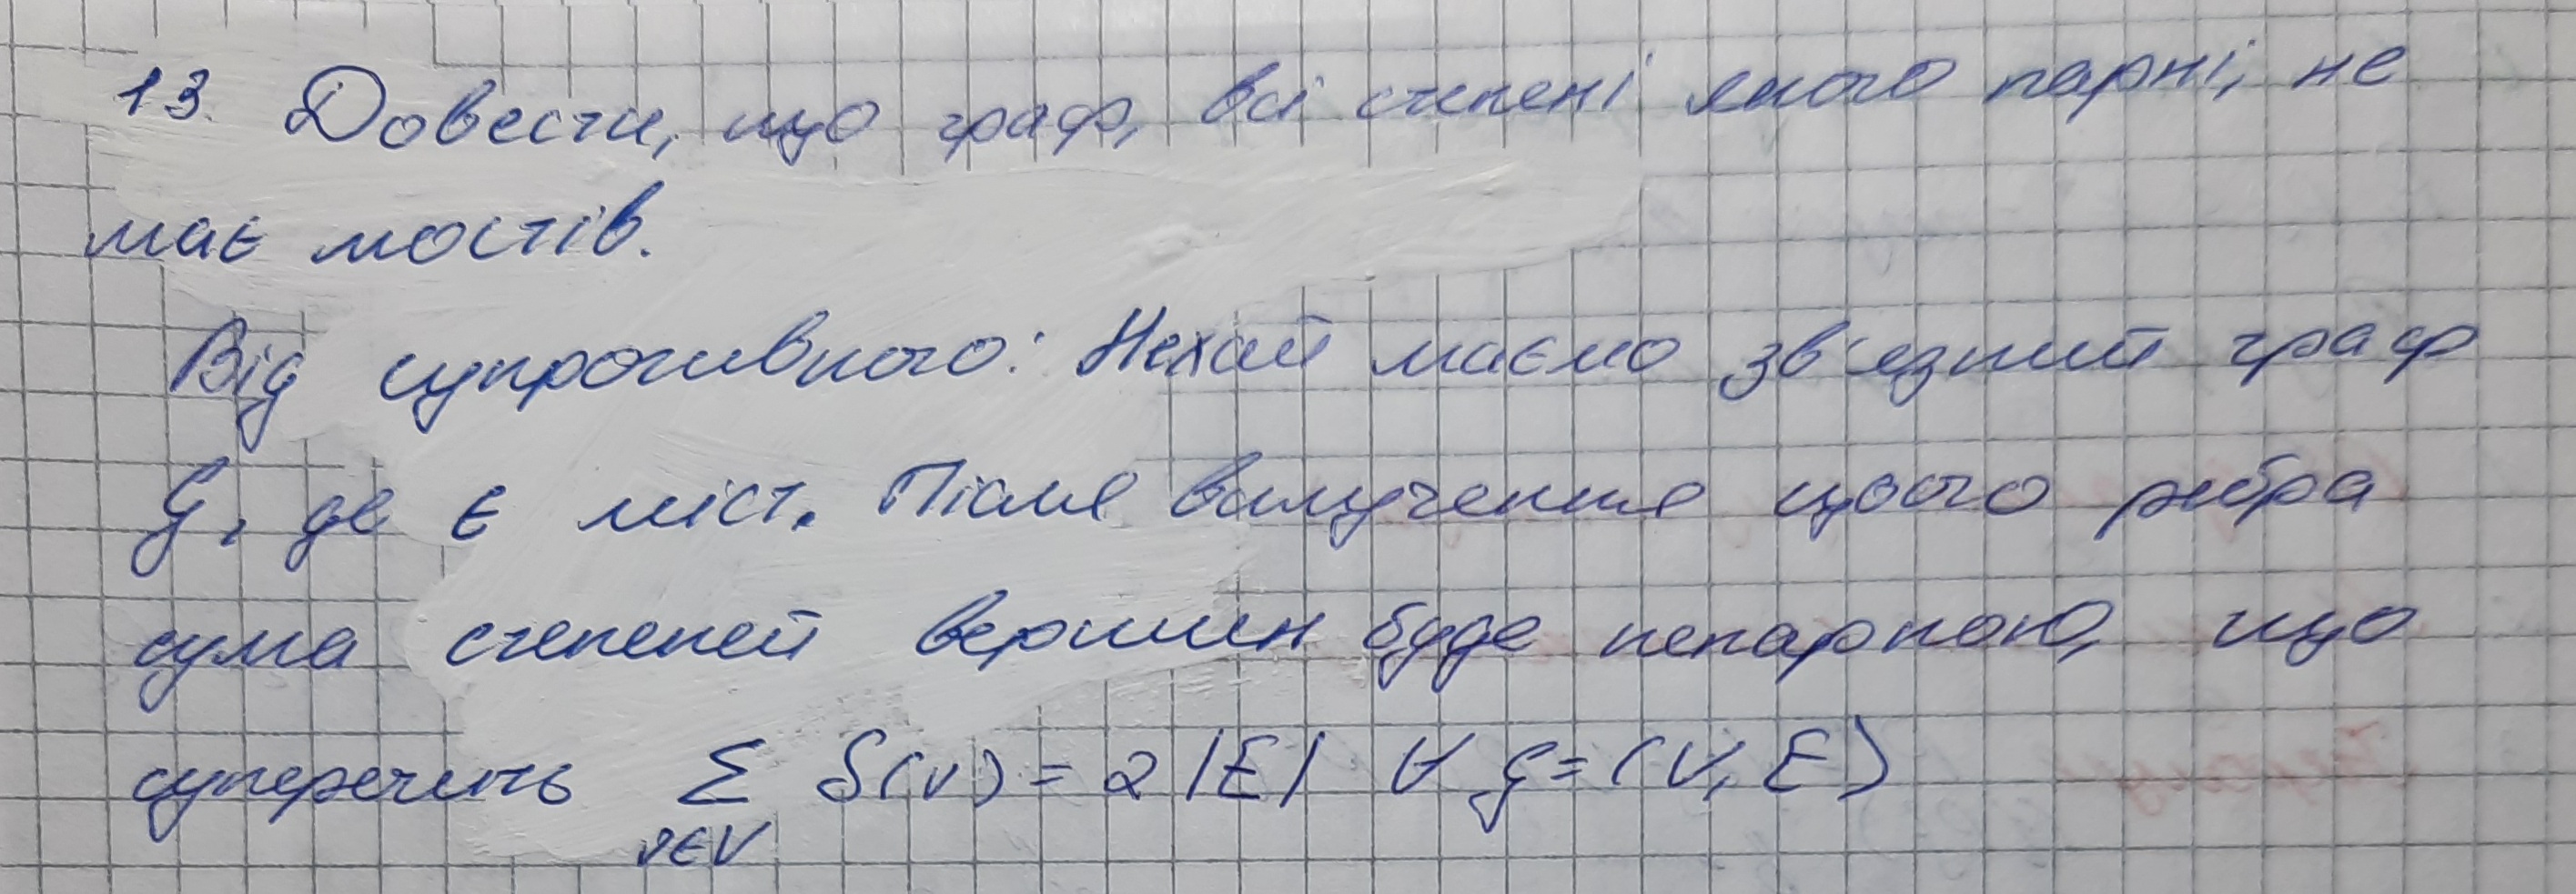 13. Довести, що граф, всі степені якого парні, не
має мостів.
Від супротивного: Нехай маємо зв'язний граф
G, де є міст. Після вилучення цього ребра
сума степеней вершин буде непарною, що
суперечить Σ δ(v) = 2|E| ∀ G = (V, E)
v∈V